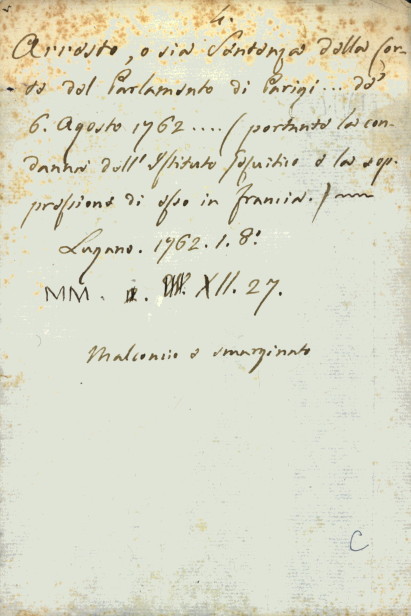 4.
Arresto, o sia Sentenza della Cor-
te del Parlamento di Parigi... de'
6. Agosto 1762.... (portante la con-
danna dell'Istituto Gesuitico e la sop-
pressione di esso in Francia.)
Lugano. 1762. 1. 8º.
MM. XII. 27.
Malconcio e smarginato
C